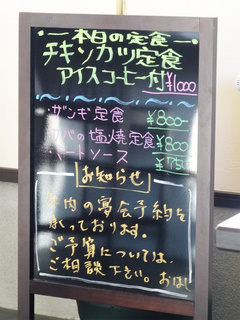 本日の定食
チキンカツ定食
アイスコーヒー付 ¥1000
・ザンギ定食 ¥800-
バの塩焼定食 ¥800
ートソース ¥750
お知らせ
内の宴会予約を
承っております。
ご予算については、
ご相談下さい。